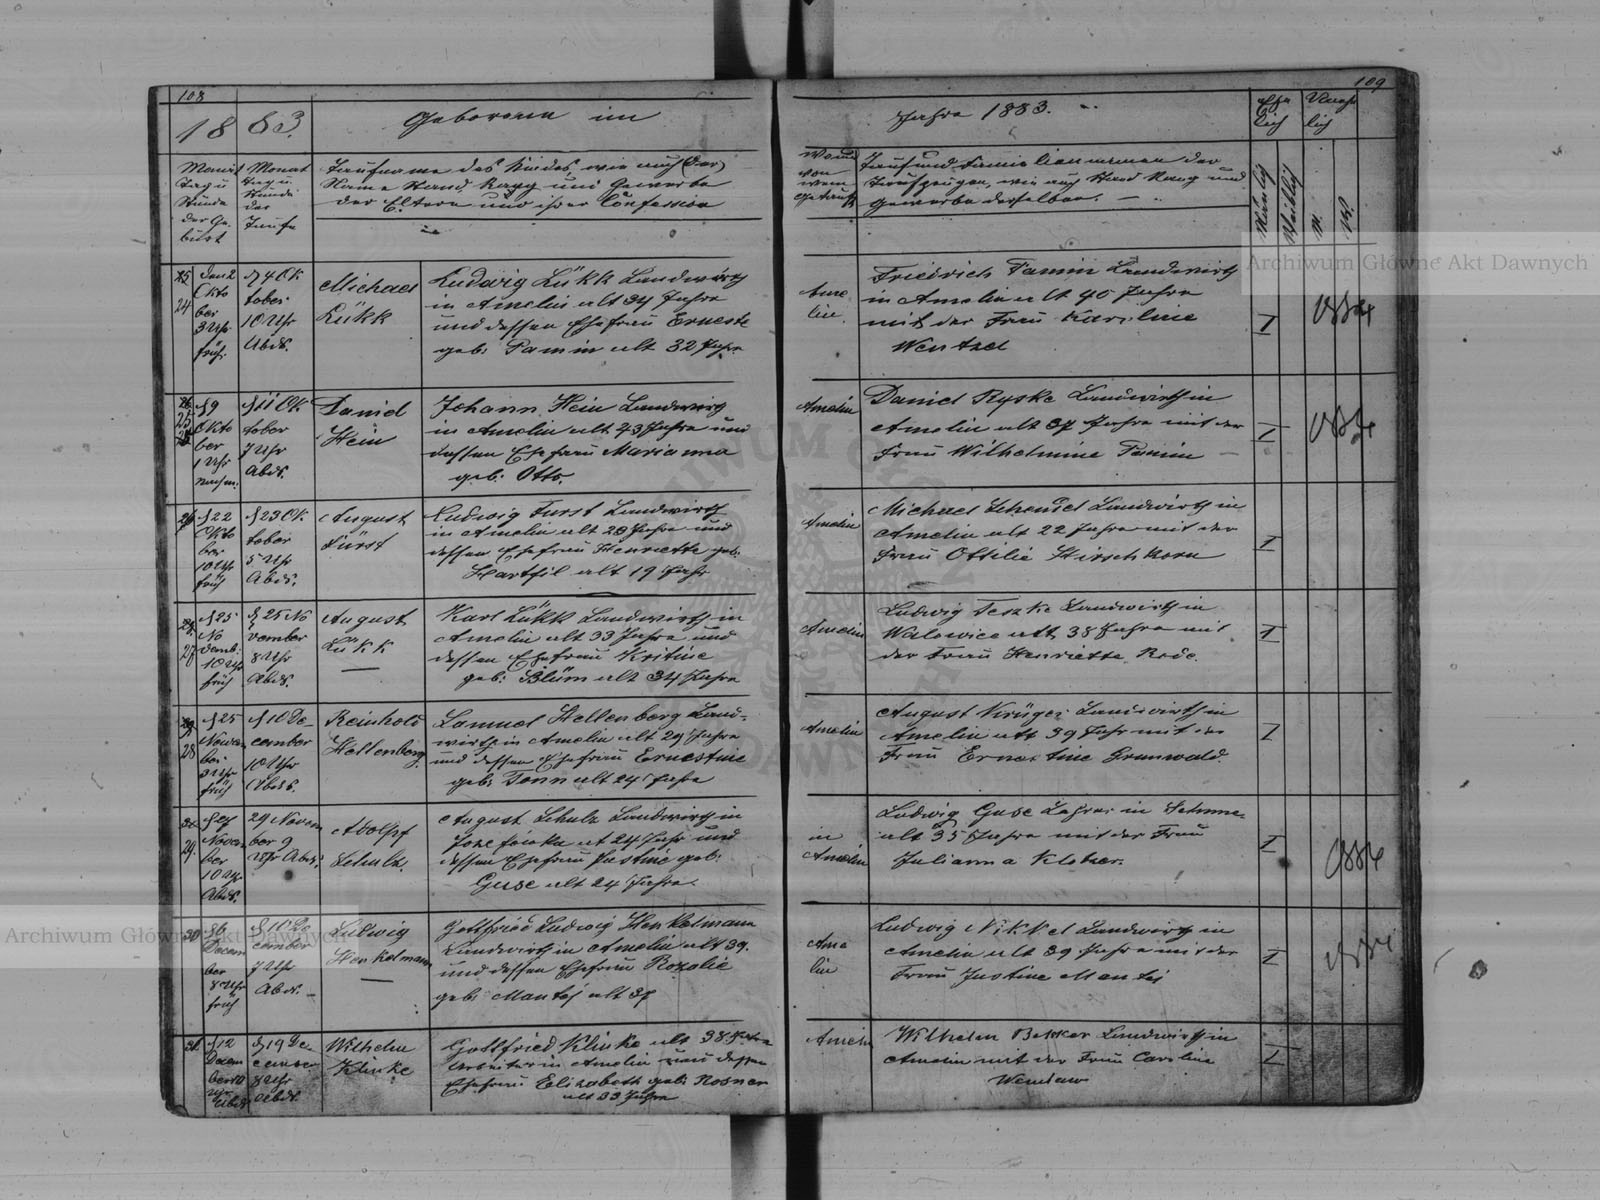 108
1883.
Geborene im
Monat
Tag u
Stunde
der Ge-
burt
Monat
Tag u.
Stunde
der
Taufe
Taufname des Kindes, wie auch (der)
Name Stand Rang und Gewerbe
der Eltern und ihrer Confession
25
24
den 2
Okto
ber
3 Uhr
früh
d 4 Ok
tober
10 Uhr
Abds.
Michael
Lükk
Ludwig Lükk Landwirth
in Amelin alt 34 Jahre
und dessen Ehefrau Erneste
geb: Pamin alt 32 Jahre
d 9
Okto
ber
1 Uhr
d 11 Ok
tober
7 Uhr
Abds.
Daniel
Hein
Johann Hein Landwirth
in Amelin alt 43 Jahre und
dessen Ehefrau Marianna
geb: Otto.
d 22
Okto
ber
10 Uhr
früh
d 23 Ok
tober
5 Uhr
Abds.
August
Fürst
Ludwig Fürst Landwirth
in Amelin alt 28 Jahre und
dessen Ehefrau Henriette geb:
Hartfil alt 19 Jahr
27
d 25
No
vemb:
10 Uhr
früh
d 25 No
vember
8 Uhr
Abds.
August
Lükk
Karl Lükk Landwirth in
Amelin alt 33 Jahre und
dessen Ehefrau Kristine
geb: Blüm alt 34 Jahre
28
d 25
Novem
ber
3 Uhr
früh
d 10 De-
cember
10 Uhr
Abds.
Reinhold
Hellenberg
Samuel Hellenberg Land-
wirth in Amelin alt 29 Jahre
und dessen Ehefrau Ernestine
geb: Tonn alt 24 Jahre
29.
Novem
ber
10 Uhr
Abds.
29 Novem
ber 9
Uhr Abds.
Adolph
Schulz.
August Schulz Landwirth in
alt 24 Jahr und
dessen Ehefrau Justine geb:
Guse alt 24 Jahre.
30
d 6
Decem
ber
8 Uhr
früh
d 10 De
cember
7 Uhr
Abds.
Ludwig
Henkelmann
Gottfried Ludwig Henkelmann
Landwirth in Amelin alt 39.
und dessen Ehefrau Rozalie
geb: Mantej alt 37
31
d 12
Decem
ber 10
Uhr
Abds
d 19 De
cember
8 Uhr
Abds.
Wilhelm
Klinke
Gottfried Klinke alt 38 Jahre
Arbeiter in Amelin und dessen
Ehefrau Elisabeth geb: Rosner
alt 33 Jahre
109
Jahre 1883.
Ehe
lich
Unehe
lich
Wo und
von
wem
getauft
Tauf und Familiennamen der
Taufzeugen, wie auch Stand Rang und
Gewerbe derselben.
Mänlich
Weiblich
M.
W.
Ame
lin.
Friedrich Pamin Landwirth
in Amelin alt 40 Jahre
mit der Frau Karoline
Wentzel
1
1884
Amelin
Daniel Ryske Landwirth in
Amelin alt 37 Jahre mit der
Frau Wilhelmine Pamin
1
1884
Amelin
Michael Schendel Landwirth in
Amelin alt 22 Jahre mit der
Frau Ottilie Hirschkorn
1
Amelin
Ludwig Teszke Landwirth in
Walowice alt 38 Jahre mit
der Frau Henriette Rode.
1
Amelin
August Krüger Landwirth in
Amelin alt 39 Jahr mit der
Frau Ernestine Grunwald.
1
in
Amelin
Ludwig Guse Lehrer in
alt 35 Jahre mit der Frau
Julianna Klotzer.
1
1884
Ame
lin
Ludwig Nikkel Landwirth in
Amelin alt 39 Jahre mit der
Frau Justine Mantej
1
1884
Amelin
Wilhelm Bekker Landwirth in
Amelin mit der Frau Caroline
1
Archiwum Główne Akt Dawnych
Archiwum Główne Akt Dawnych
ARCHIWUM GŁÓWNE AKT DAWNYCH